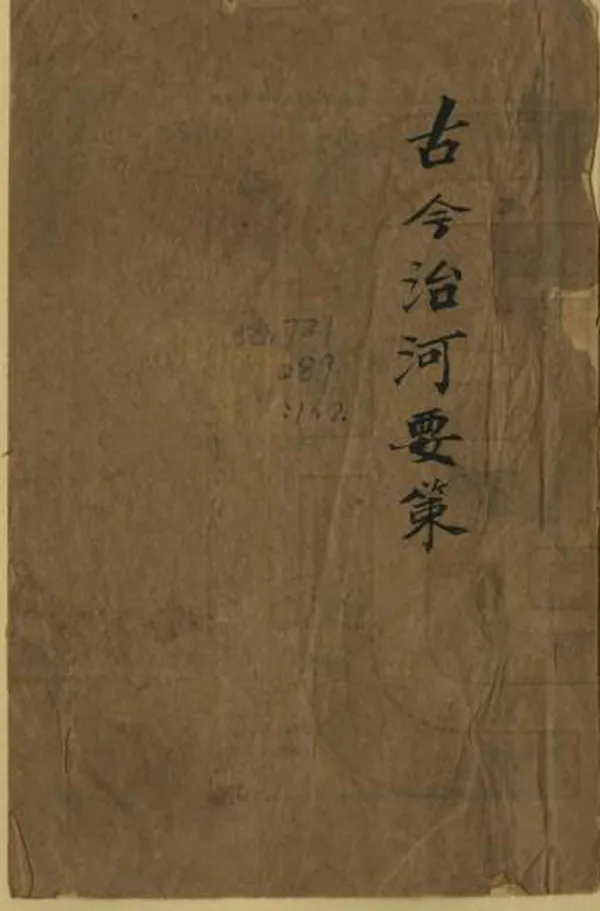 古今治河要策
721
287.